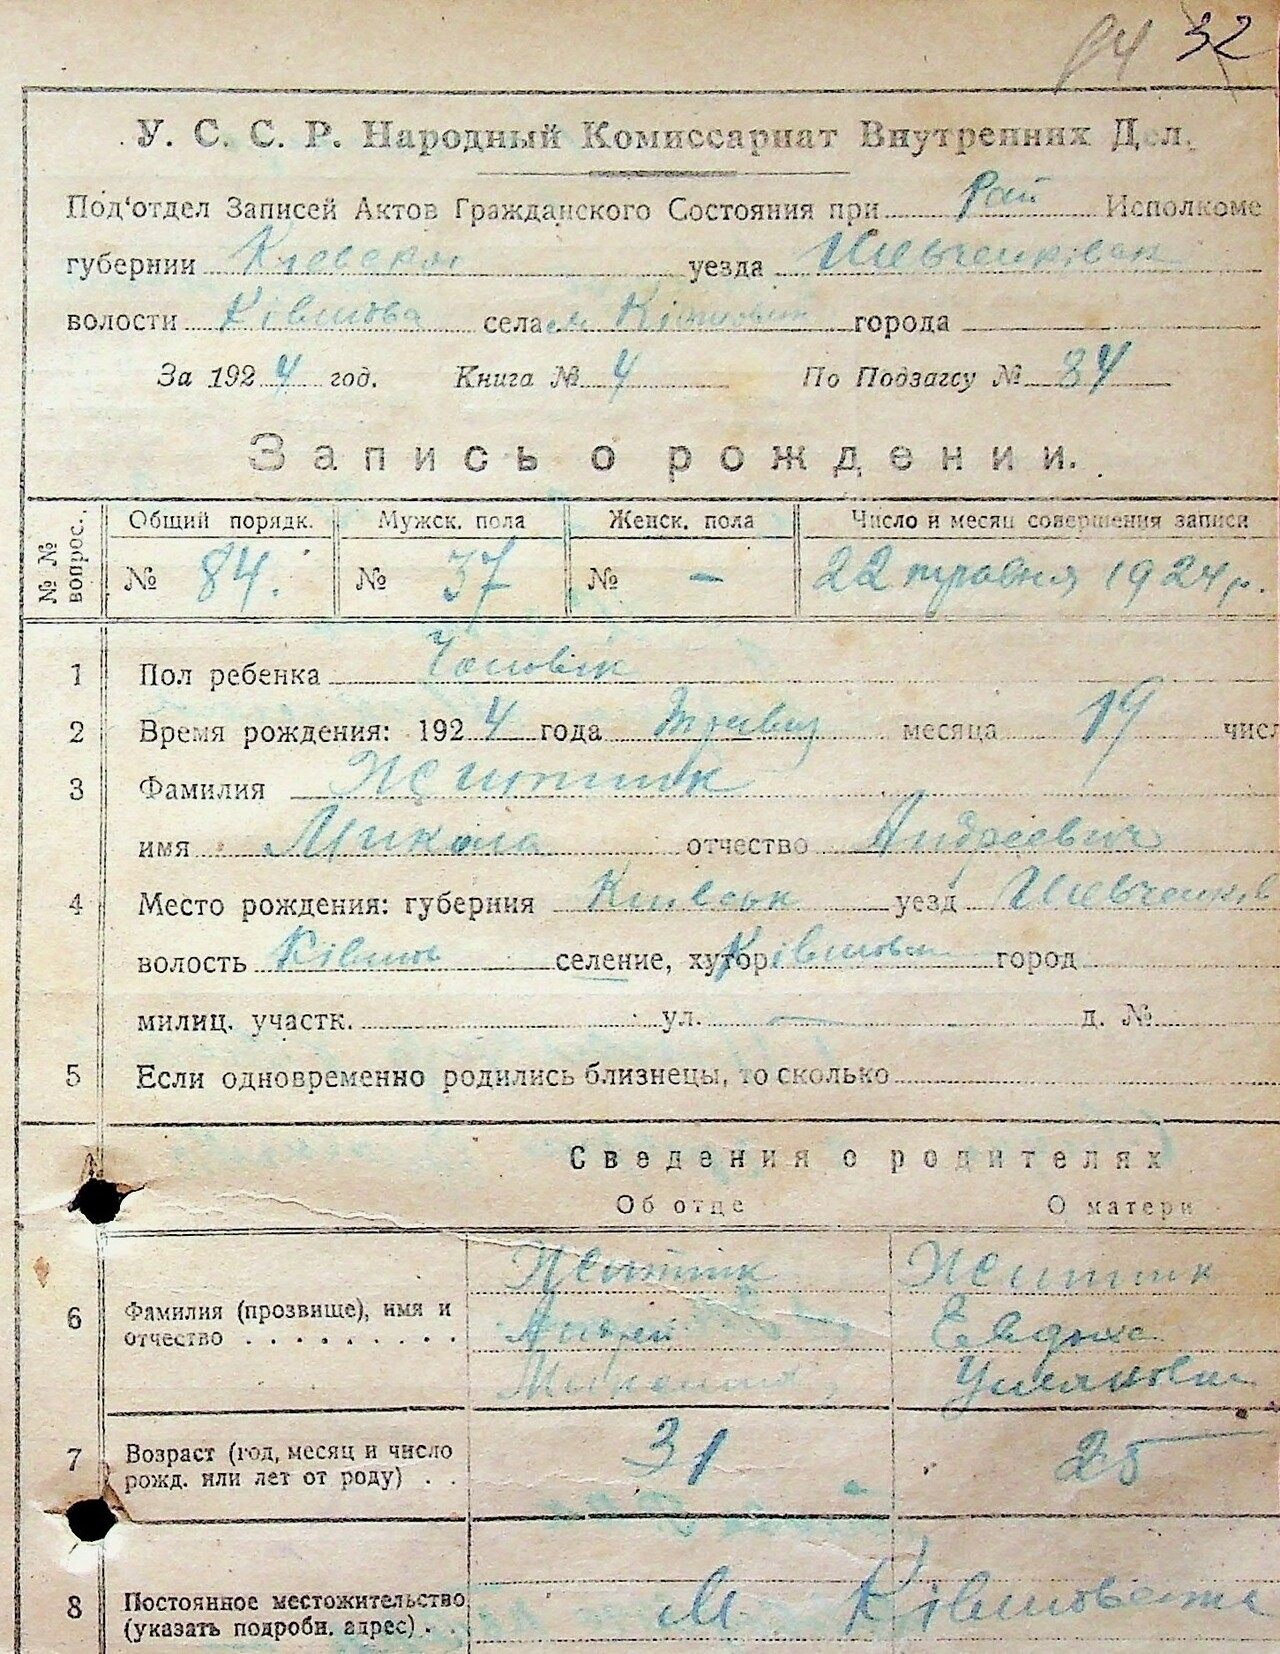 84 32
У. С. С. Р. Народный Комиссариат Внутренних Дел.
Под'отдел Записей Актов Гражданского Состояния при Рай Исполкоме
губернии уезда Шевченківськ
волости Ківшова села м. города
За 1924 год. Книга № 4 По Подзагсу № 84
Запись о рождении.
№ № вопрос. Общий порядк. Мужск. пола Женск. пола Число и месяц совершения записи
№ 84. № 37 № – 22 травня 1924 р.
1 Пол ребенка Чоловік
2 Время рождения: 1924 года травня месяца 19 числ
3 Фамилия
имя Микола отчество Андреевич
4 Место рождения: губерния Київськ уезд Шевченків
волость Ківшов селение, хутор Ківшова город
милиц. участк. ул. — д. №
5 Если одновременно родились близнецы, то сколько
Сведения о родителях
Об отце О матери
6 Фамилия (прозвище), имя и
отчество
Андрей Евдоха
7 Возраст (год, месяц и число
рожд. или лет от роду) . . 31 25
8 Постоянное местожительство
(указать подробн. адрес) . . м.